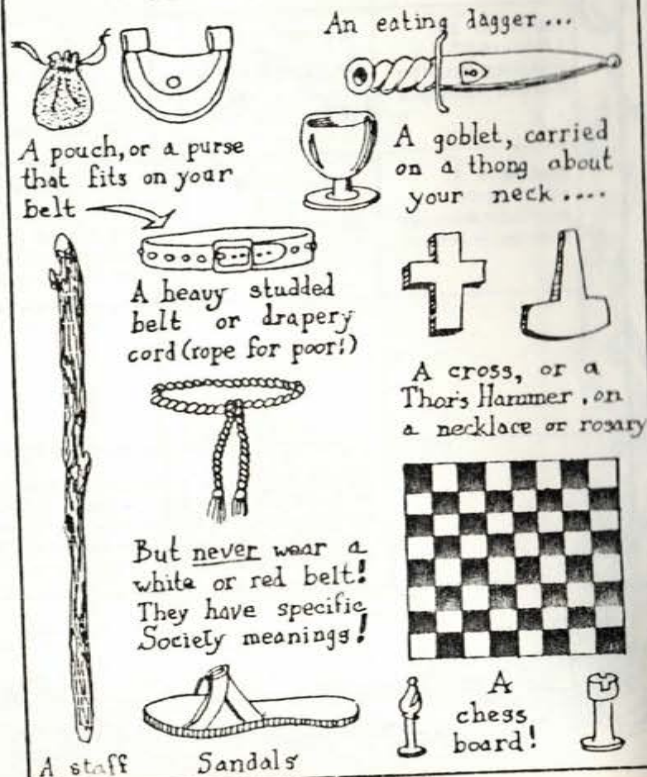 An eating dagger ...
A pouch, or a purse
that fits on your
belt
A goblet, carried
on a thong about
your neck ....
A heavy studded
belt or drapery
cord (rope for poor!)
A cross, or a
Thor's Hammer, on
a necklace or rosary
But never wear a
white or red belt!
They have specific
Society meanings!
A
chess
board!
A staff
Sandals